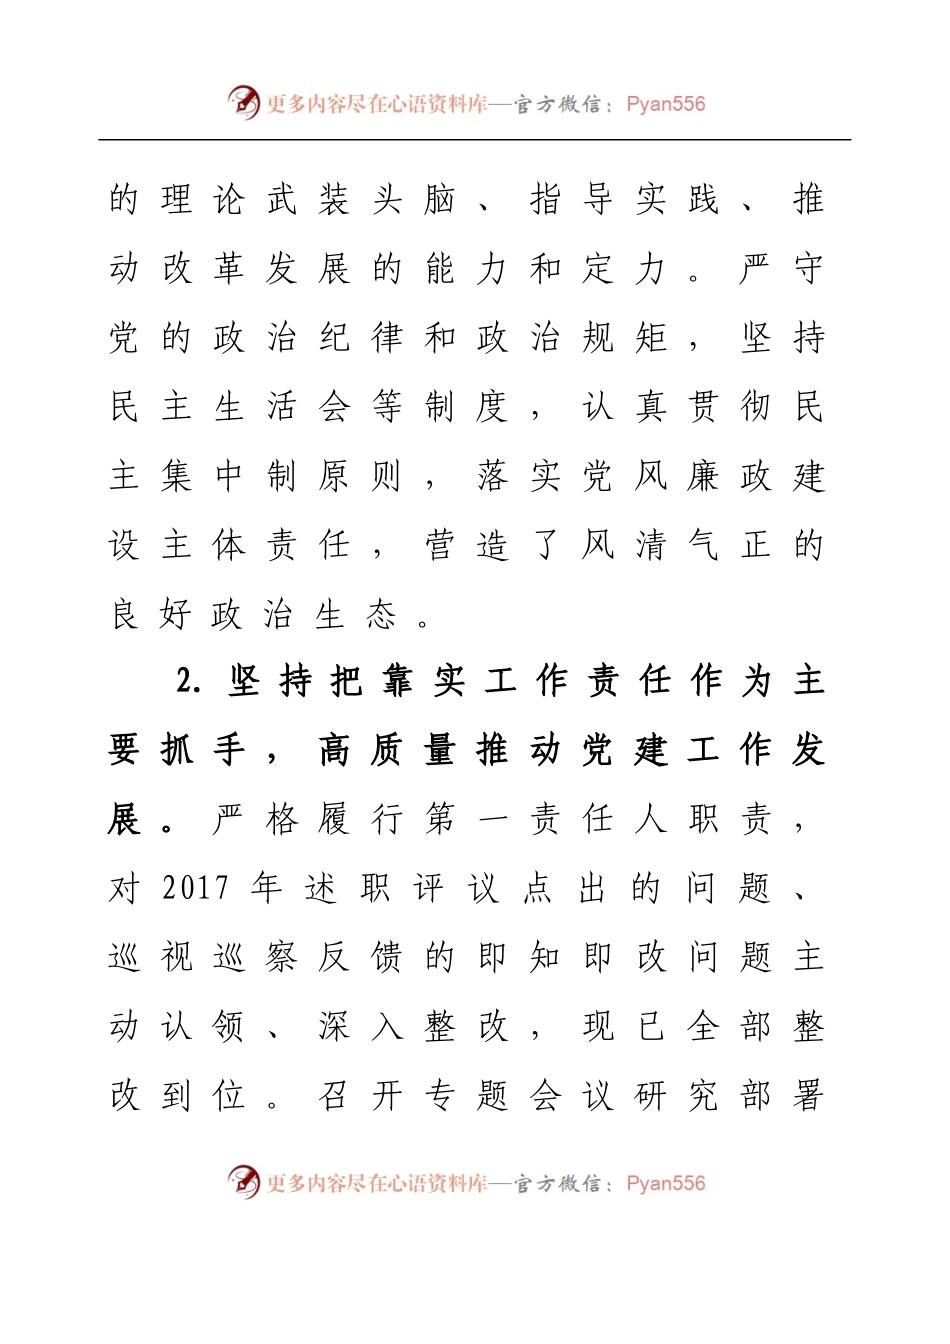 更多内容尽在心语资料库—官方微信：Pyan556
的理论武装头脑、指导实践、推
动改革发展的能力和定力。严守
党的政治纪律和政治规矩，坚持
民主生活会等制度，认真贯彻民
主集中制原则，落实党风廉政建
设主体责任，营造了风清气正的
良好政治生态。
2.坚持把靠实工作责任作为主
要抓手，高质量推动党建工作发
展。严格履行第一责任人职责，
对2017年述职评议点出的问题、
巡视巡察反馈的即知即改问题主
动认领、深入整改，现已全部整
改到位。召开专题会议研究部署
更多内容尽在心语资料库—官方微信：Pyan556